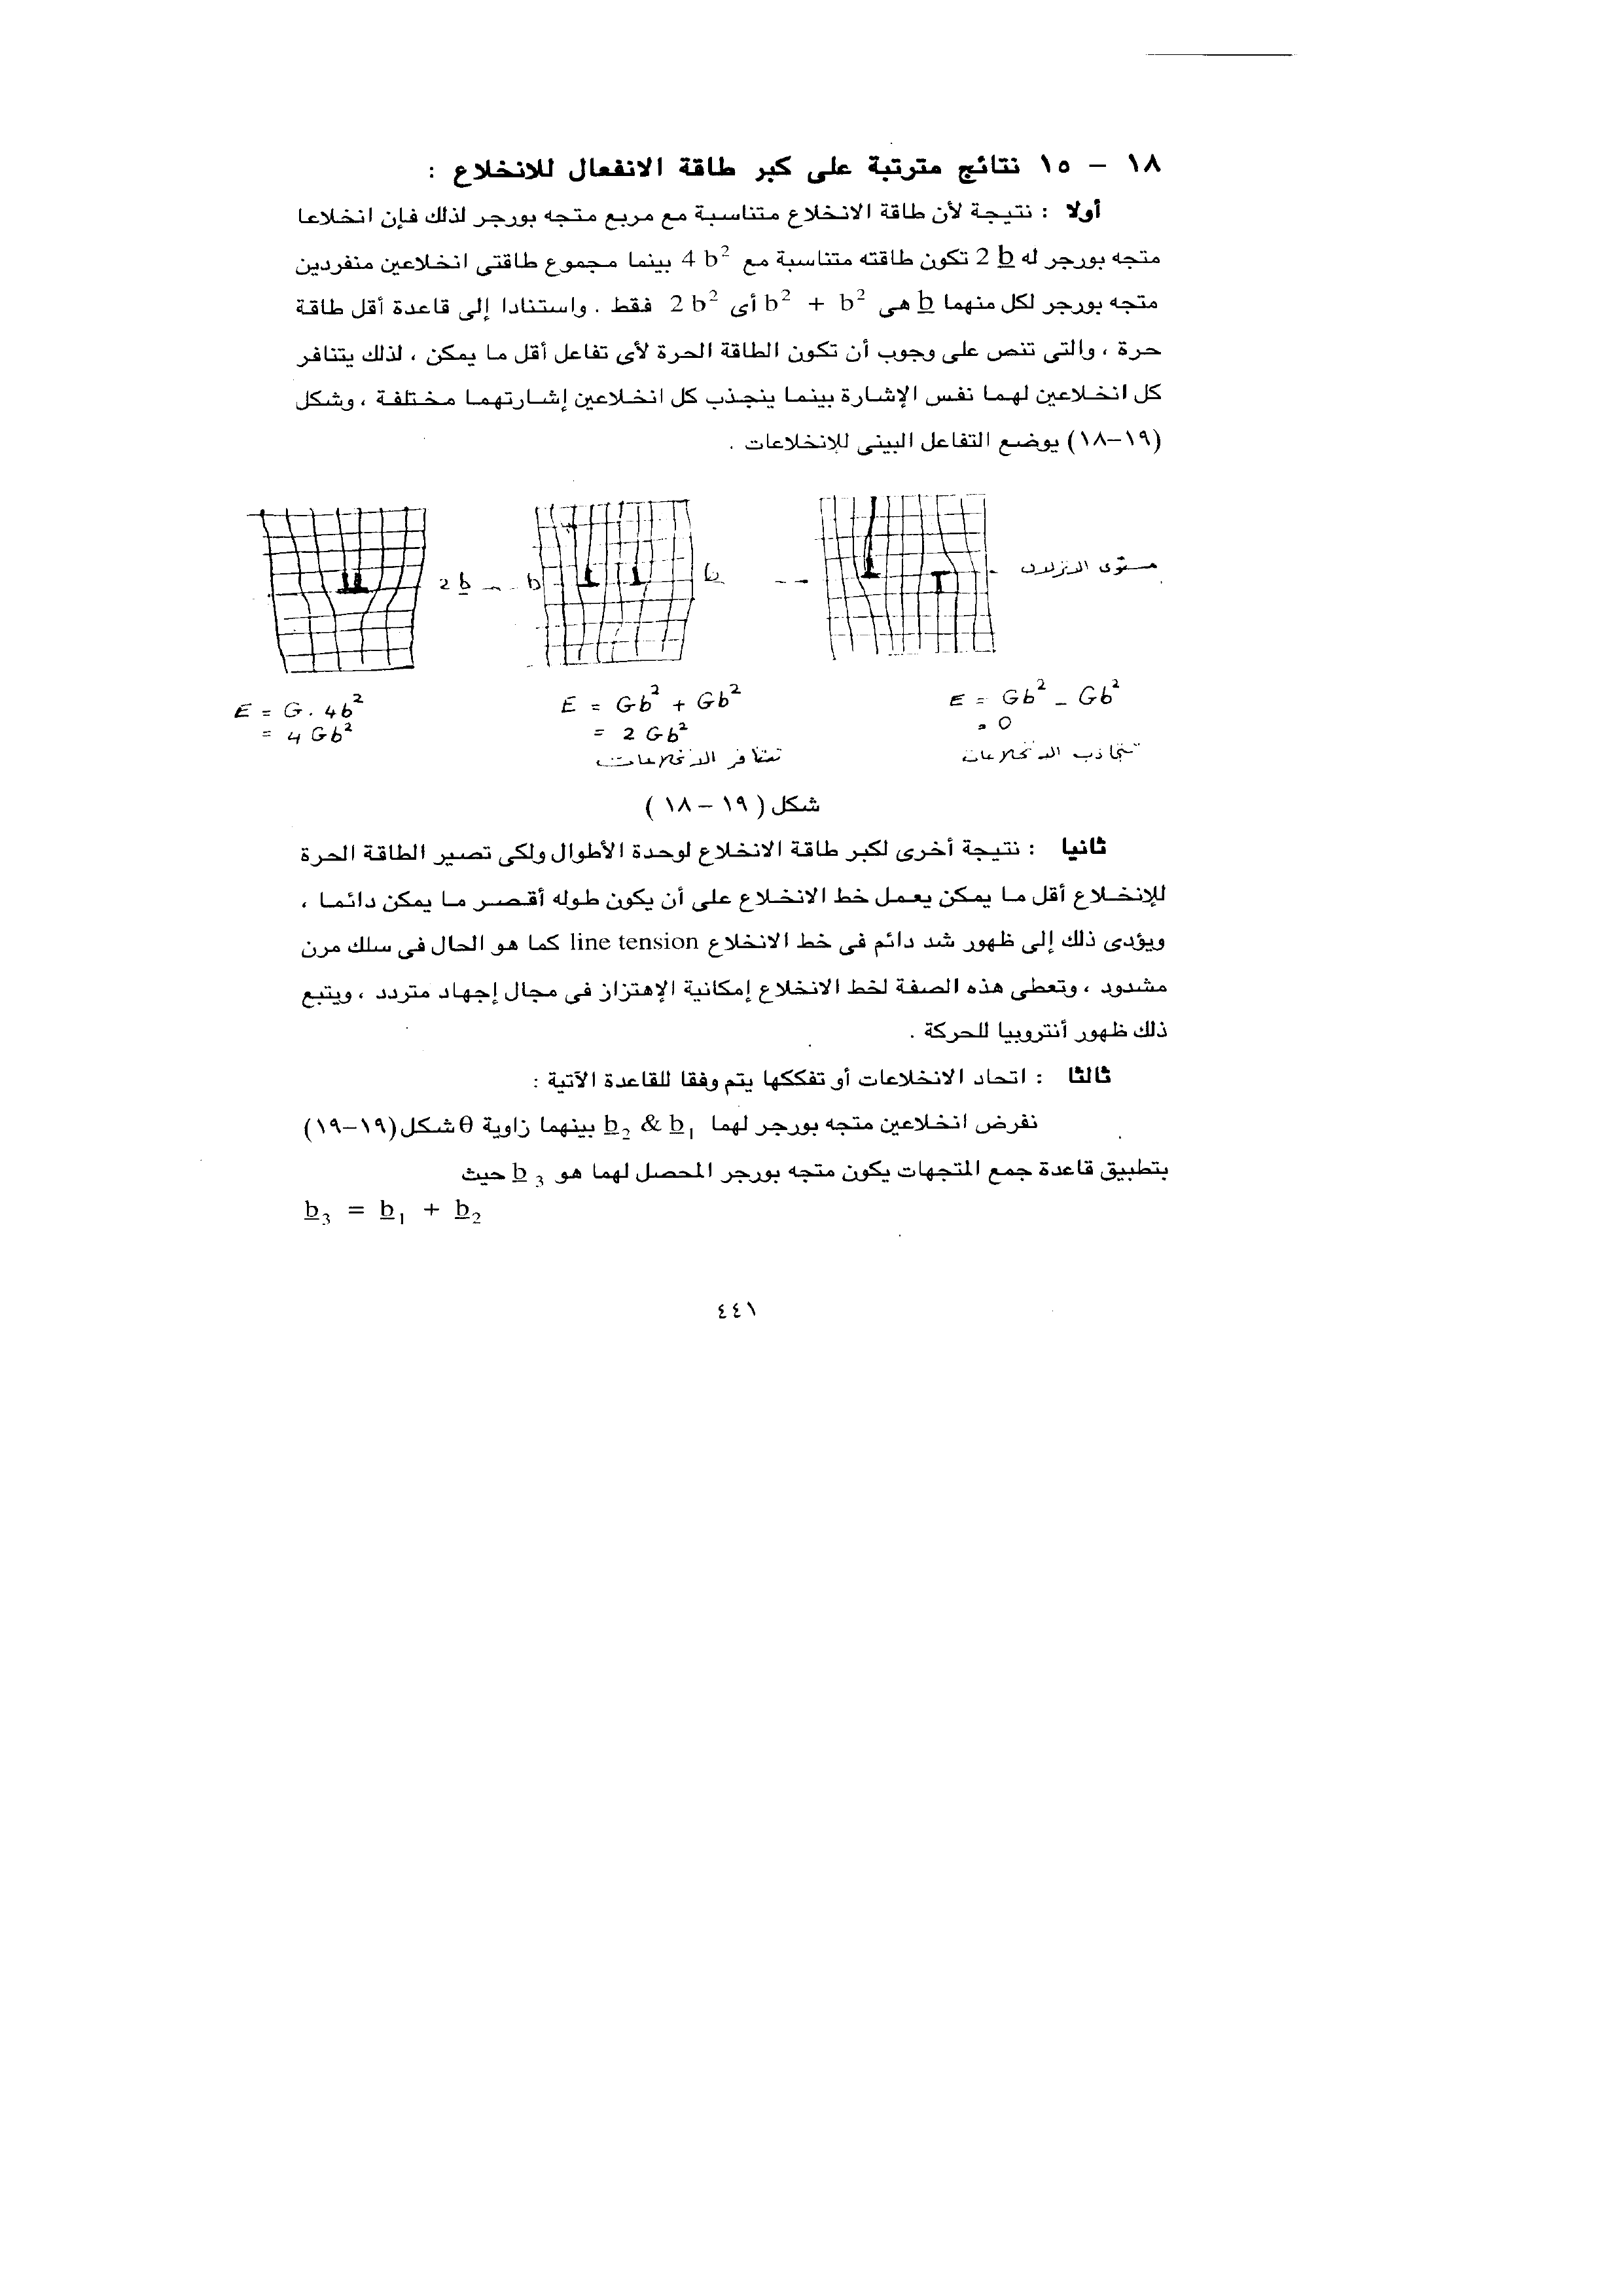 ١٨ – ١٥ نتائج مترتبة على كبر طاقة الانفعال للانخلاع :
أولا : نتيجة لأن طاقة الانخلاع متناسبة مع مربع متجه بورجر لذلك فإن انخلاعا
متجه بورجر له 2 b تكون طاقته متناسبة مع 4 b² بينما مجموع طاقتى انخلاعين منفردين
متجه بورجر لكل منهما b هى b² + b² أى 2 b² فقط . واستنادا إلى قاعدة أقل طاقة
حرة ، والتى تنص على وجوب أن تكون الطاقة الحرة لأى تفاعل أقل ما يمكن ، لذلك يتنافر
كل انخلاعين لهما نفس الإشارة بينما ينجذب كل انخلاعين إشارتهما مختلفة ، وشكل
(١٩–١٨) يوضع التفاعل البينى للإنخلاعات .
مستوى الانزلاق
b
b
2 b
E = Gb² – Gb²
= 0
تتجاذب الانخلاعات
E = Gb² + Gb²
= 2 Gb²
تتنافر الانخلاعات
E = G. 4b²
= 4 Gb²
شكل ( ١٩ – ١٨ )
ثانيا : نتيجة أخرى لكبر طاقة الانخلاع لوحدة الأطوال ولكى تصير الطاقة الحرة
للإنخلاع أقل ما يمكن يعمل خط الانخلاع على أن يكون طوله أقصر ما يمكن دائما ،
ويؤدى ذلك إلى ظهور شد دائم فى خط الانخلاع line tension كما هو الحال فى سلك مرن
مشدود ، وتعطى هذه الصفة لخط الانخلاع إمكانية الإهتزاز فى مجال إجهاد متردد ، ويتبع
ذلك ظهور أنتروبيا للحركة .
ثالثا : اتحاد الانخلاعات أو تفككها يتم وفقا للقاعدة الآتية :
نفرض انخلاعين متجه بورجر لهما b₂ & b₁ بينهما زاوية θ شكل (١٩–١٩)
بتطبيق قاعدة جمع المتجهات يكون متجه بورجر المحصل لهما هو b₃ حيث
b₃ = b₁ + b₂
٤٤١